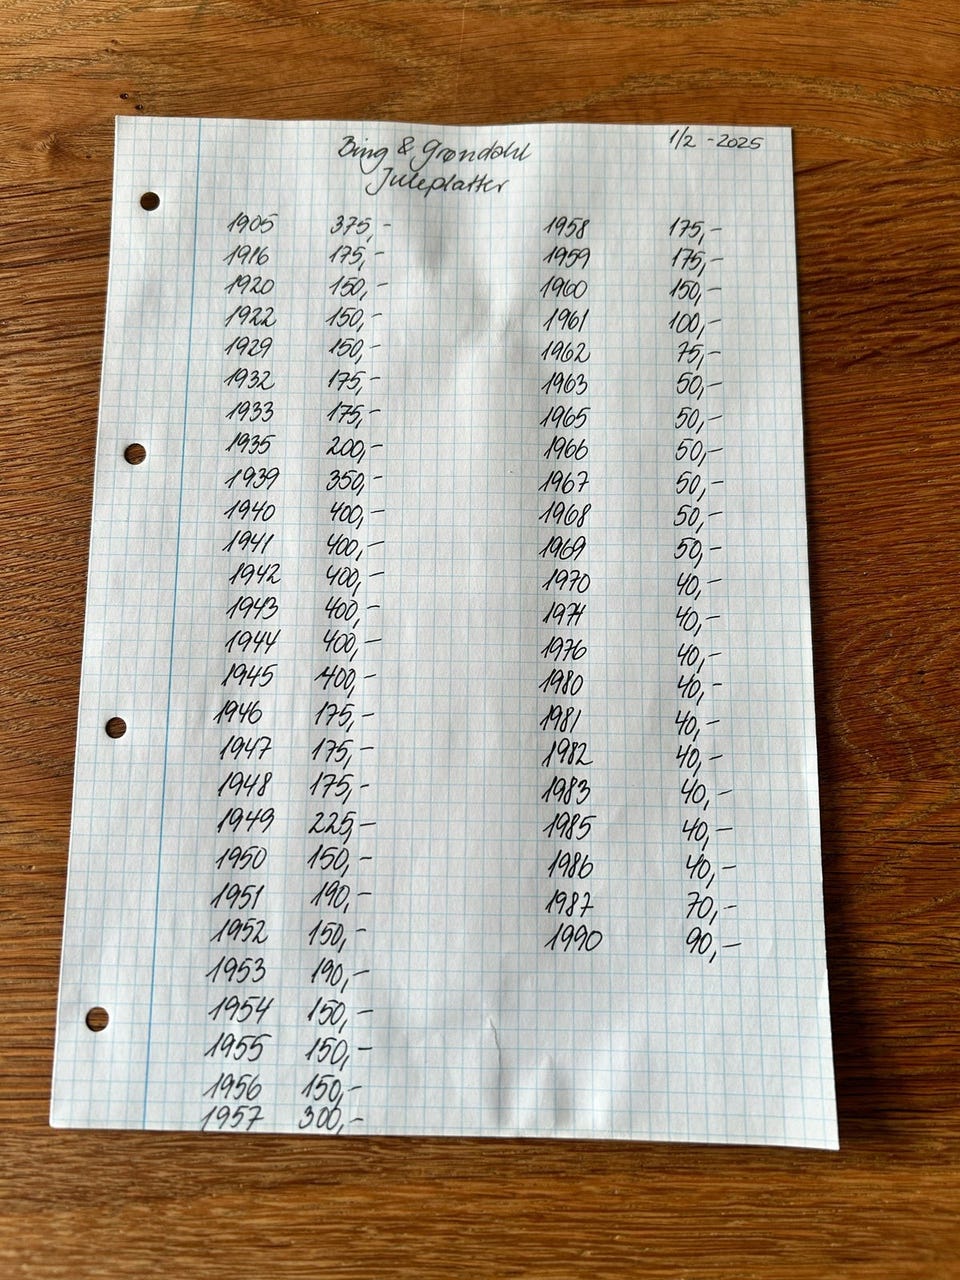 Bing & Grøndahl
Juleplatter
1/2 - 2025
1905 375,-
1916 175,-
1920 150,-
1922 150,-
1929 150,-
1932 175,-
1933 175,-
1935 200,-
1939 350,-
1940 400,-
1941 400,-
1942 400,-
1943 400,-
1944 400,-
1945 400,-
1946 175,-
1947 175,-
1948 175,-
1949 225,-
1950 150,-
1951 190,-
1952 150,-
1953 190,-
1954 150,-
1955 150,-
1956 150,-
1957 300,-
1958 175,-
1959 175,-
1960 150,-
1961 100,-
1962 75,-
1963 50,-
1965 50,-
1966 50,-
1967 50,-
1968 50,-
1969 50,-
1970 40,-
40,-
1976 40,-
1980 40,-
1981 40,-
1982 40,-
1983 40,-
1985 40,-
1986 40,-
1987 70,-
1990 90,-